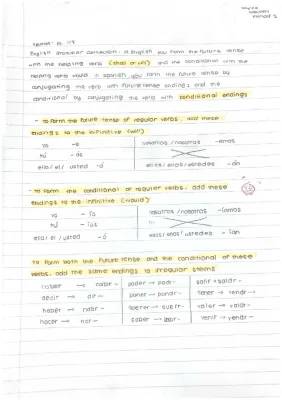 English Grammar Connection: In English you form the future tense
with the helping verb (shall or will) and the conditional with the
helping verb would. In Spanish you form the future tense by
conjugating the verb with future tense endings and the
conditional by conjugating the verb with conditional endings
- To form the future tense of regular verbs, add these
endings to the infinitive (will)
yo -é nosotros/nosotras -emos
tú -ás
ella/el/usted -á ellos/ellas/ustedes -án
- To form the conditional of regular verbs, add these
endings to the infinitive (would)
yo -ía nosotros/nosotras -íamos
tú -ías
ella/el/usted -ía ellos/ellas/ustedes -ían
To form both the future tense and the conditional of these
verbs, add the same endings to irregular stems
poder → podr- salir → saldr-
decir → dir- poner → pondr- tener → tendr-
haber → habr- querer → querr- valer → valdr-
hacer → har- saber → venir → vendr-